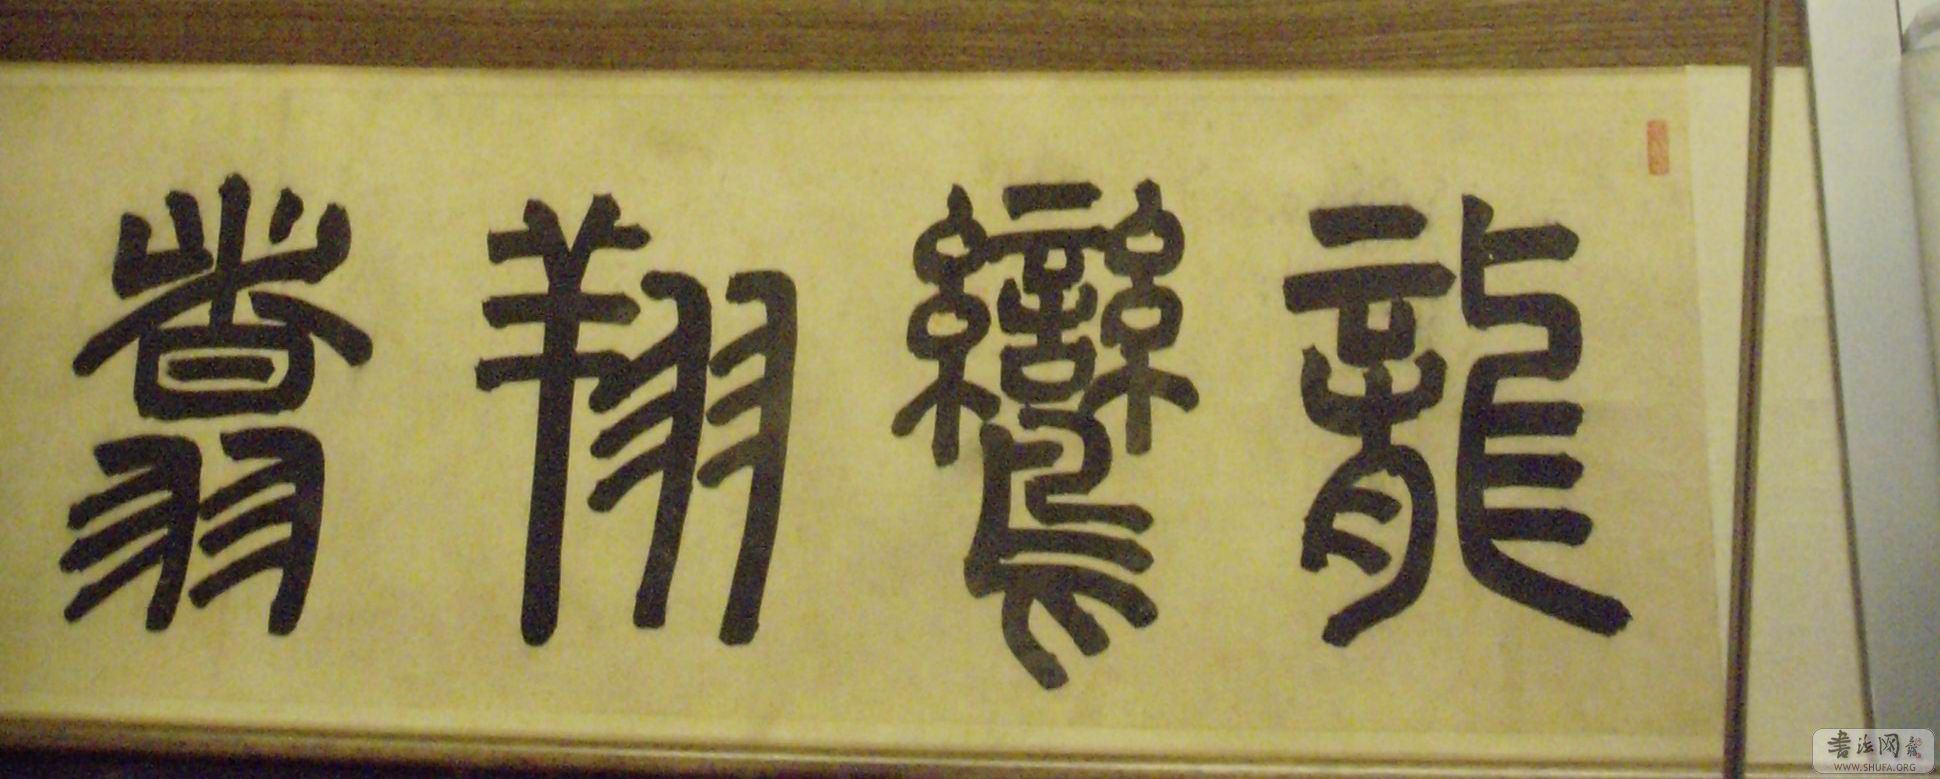 龍鸞翔翥
書法网
WWW.SHUFA.ORG